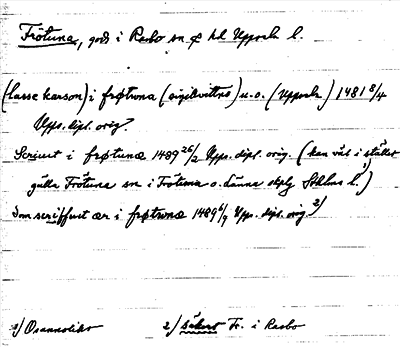 Frötuna, gods i Rasbo sn o hd Uppsala l.
(lasse karson) i frøtwna (sigilvittne) u.o. (Uppsala) 1481 8/4
Upps. dipl. orig.
Scriuit i frøtunæ 1489 26/2 Upps. dipl. orig. (kan väl i stället
gälla Frötuna sn i Frötuna o. Länna skplg Sthlms l.)
Som scriffuit ær i frøtwnæ 1489 6/9 Upps. dipl. orig. 2)
1) Osannolikt 2) säkert Fr. i Rasbo